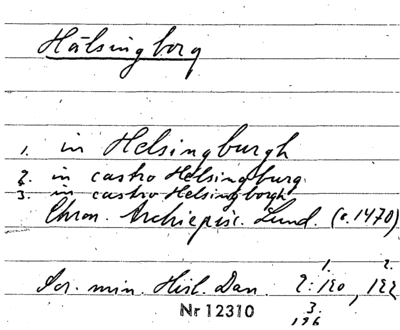 Hälsingborg
1. in Helsingburgh
2. in castro Helsingburg
3. in castro Helsingborgh
Chron. Archiepisc. Lund. (c. 1470)
1. 2.
Scr. min. Hist. Dan. 2:120, 122
3.
126
Nr 12310